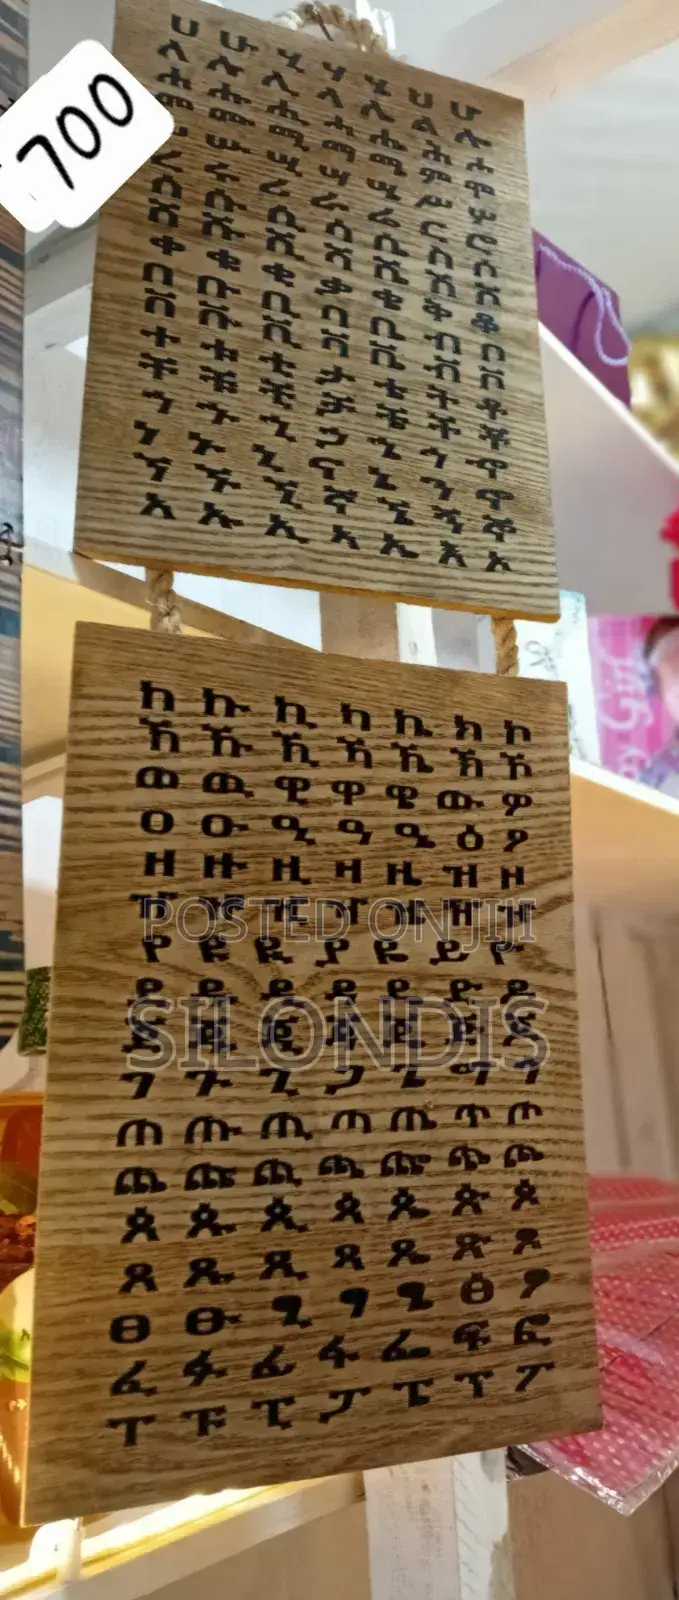 700
ሀ ሁ ሂ ሃ ሄ ህ ሆ
ለ ሉ ሊ ላ ሌ ል ሎ
ሐ ሑ ሒ ሓ ሔ ሕ ሖ
መ ሙ ሚ ማ ሜ ም ሞ
ሠ ሡ ሢ ሣ ሤ ሥ ሦ
ረ ሩ ሪ ራ ሬ ር ሮ
ሰ ሱ ሲ ሳ ሴ ስ ሶ
ሸ ሹ ሺ ሻ ሼ ሽ ሾ
ቀ ቁ ቂ ቃ ቄ ቅ ቆ
በ ቡ ቢ ባ ቤ ብ ቦ
ቨ ቩ ቪ ቫ ቬ ቭ ቮ
ተ ቱ ቲ ታ ቴ ት ቶ
ቸ ቹ ቺ ቻ ቼ ች ቾ
ኀ ኁ ኂ ኃ ኄ ኅ ኆ
ነ ኑ ኒ ና ኔ ን ኖ
ኘ ኙ ኚ ኛ ኜ ኝ ኞ
አ ኡ ኢ ኣ ኤ እ ኦ
ከ ኩ ኪ ካ ኬ ክ ኮ
ኸ ኹ ኺ ኻ ኼ ኽ ኾ
ወ ዉ ዊ ዋ ዌ ው ዎ
ዐ ዑ ዒ ዓ ዔ ዕ ዖ
ዘ ዙ ዚ ዛ ዜ ዝ ዞ
ዠ ዡ ዢ ዣ ዤ ዥ ዦ
POSTED ON JIJI
የ ዩ ዪ ያ ዬ ይ ዮ
ደ ዱ ዲ ዳ ዴ ድ ዶ
SILONDIS
ጀ ጁ ጂ ጃ ጄ ጅ ጆ
ገ ጉ ጊ ጋ ጌ ግ ጎ
ጠ ጡ ጢ ጣ ጤ ጥ ጦ
ጨ ጩ ጪ ጫ ጬ ጭ ጮ
ጰ ጱ ጲ ጳ ጴ ጵ ጶ
ጸ ጹ ጺ ጻ ጼ ጽ ጾ
ፀ ፁ ፂ ፃ ፄ ፅ ፆ
ፈ ፉ ፊ ፋ ፌ ፍ ፎ
ፐ ፑ ፒ ፓ ፔ ፕ ፖ